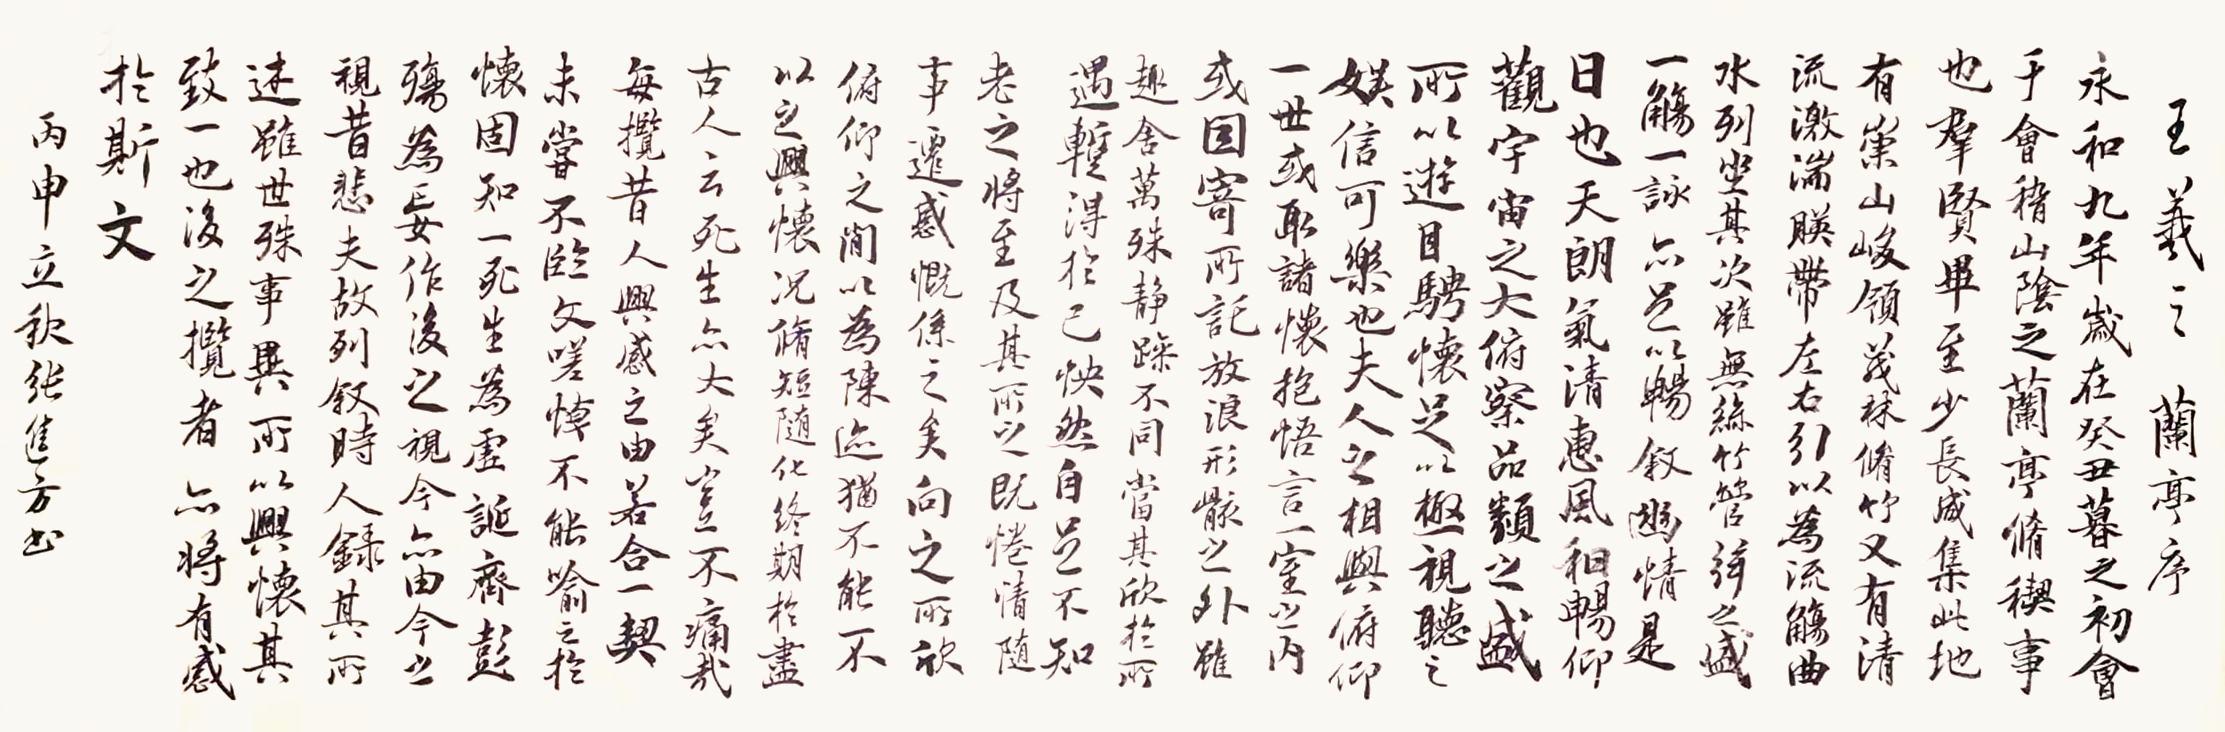 王羲之 蘭亭序
永和九年歲在癸丑暮之初會
于會稽山陰之蘭亭脩稧事
也羣賢畢至少長咸集此地
有崇山峻領茂林脩竹又有清
流激湍暎帶左右引以為流觴曲
水列坐其次雖無絲竹管弦之盛
一觴一詠亦足以暢敘幽情是
日也天朗氣清惠風和暢仰
觀宇宙之大俯察品類之盛
所以遊目騁懷足以極視聽之
娛信可樂也夫人之相與俯仰
一世或取諸懷抱悟言一室之內
或因寄所託放浪形骸之外雖
趣舍萬殊静躁不同當其欣於所
遇蹔得於己怏然自足不知
老之將至及其所之既惓情隨
事遷感慨係之矣向之所欣
俯仰之閒以為陳迹猶不能不
以之興懷况脩短隨化終期於盡
古人云死生亦大矣豈不痛哉
每攬昔人興感之由若合一契
未嘗不臨文嗟悼不能喻之於
懷固知一死生為虛誕齊彭
殤為妄作後之視今亦由今之
視昔悲夫故列敘時人録其所
述雖世殊事異所以興懷其
致一也後之攬者亦將有感
於斯文
丙申立秋张進方书